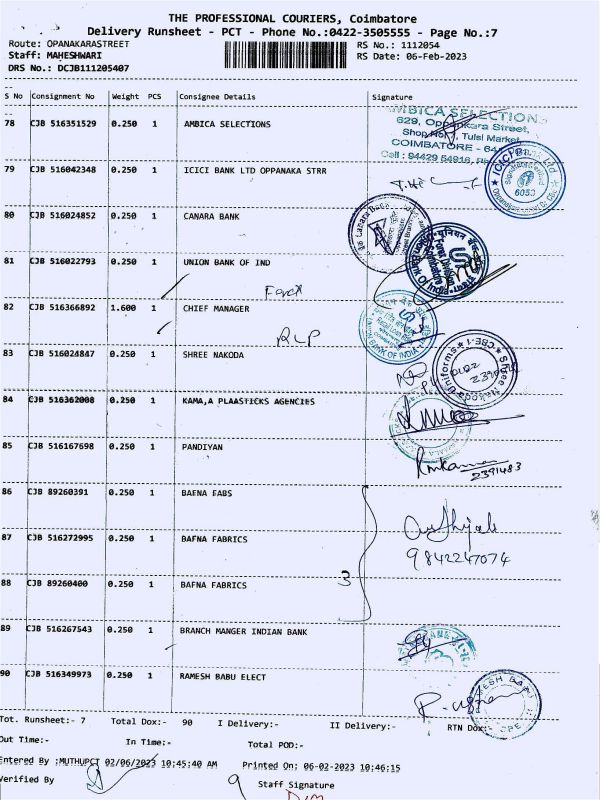 THE PROFESSIONAL COURIERS, Coimbatore
Delivery Runsheet - PCT - Phone No.:0422-3505555 - Page No.:7
Route: OPANAKARASTREET RS No.: 1112054
Staff: MAHESHWARI RS Date: 06-Feb-2023
DRS No.: DCJB111205407
S No Consignment No Weight PCS Consignee Details Signature
78 CJB 516351529 0.250 1 AMBICA SELECTIONS
AMBICA SELECTIONS
629, Oppankara Street,
Tulsi Market
COIMBATORE
79 CJB 516042348 0.250 1 ICICI BANK LTD OPPANAKA STRR
ICICI Bank Ltd
6053
80 CJB 516024852 0.250 1 CANARA BANK
Canara Bank
81 CJB 516022793 0.250 1 UNION BANK OF IND
Union Bank of India
82 CJB 516366892 1.600 1 CHIEF MANAGER
RLP
UNION BANK OF INDIA
83 CJB 516024847 0.250 1 SHREE NAKODA
Shree Nakoda Uniforms CBE-1
84 CJB 516362008 0.250 1 KAMA,A PLAASTICKS AGENCIES
85 CJB 516167698 0.250 1 PANDIYAN
2391483
86 CJB 89260391 0.250 1 BAFNA FABS
87 CJB 516272995 0.250 1 BAFNA FABRICS
9842247074
88 CJB 89260400 0.250 1 BAFNA FABRICS
3
89 CJB 516267543 0.250 1 BRANCH MANGER INDIAN BANK
90 CJB 516349973 0.250 1 RAMESH BABU ELECT
Tot. Runsheet:- 7 Total Dox:- 90 I Delivery:- II Delivery:- RTN Dox:-
Out Time:- In Time:- Total POD:-
Entered By :MUTHUPCT 02/06/2023 10:45:40 AM Printed On: 06-02-2023 10:46:15
Verified By Staff Signature